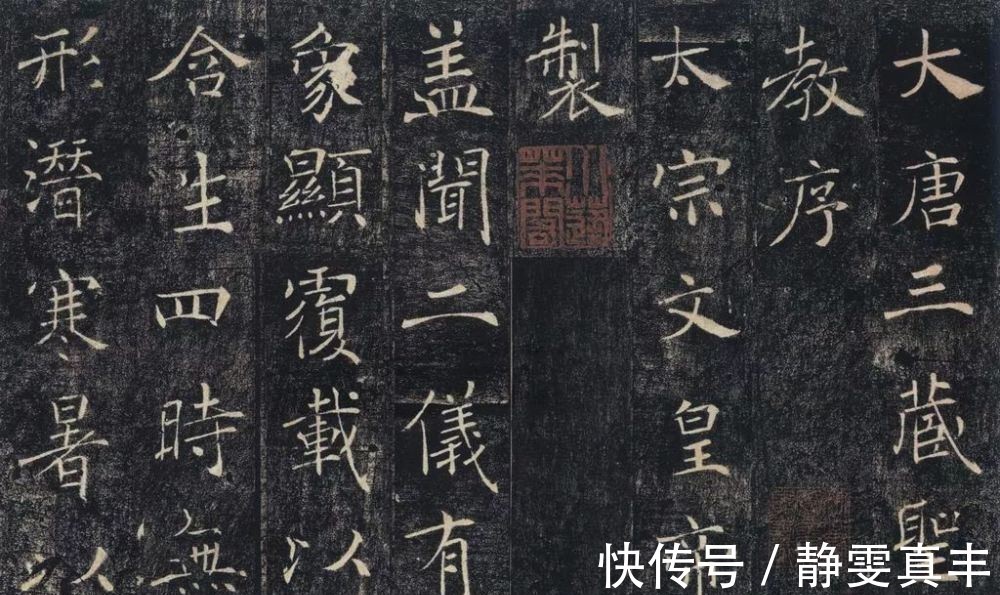 大唐三藏聖
教序
太宗文皇帝
製
盖聞二儀有
象顯覆載以
含生四時無
形潛寒暑以
快传号 / 静雯真丰